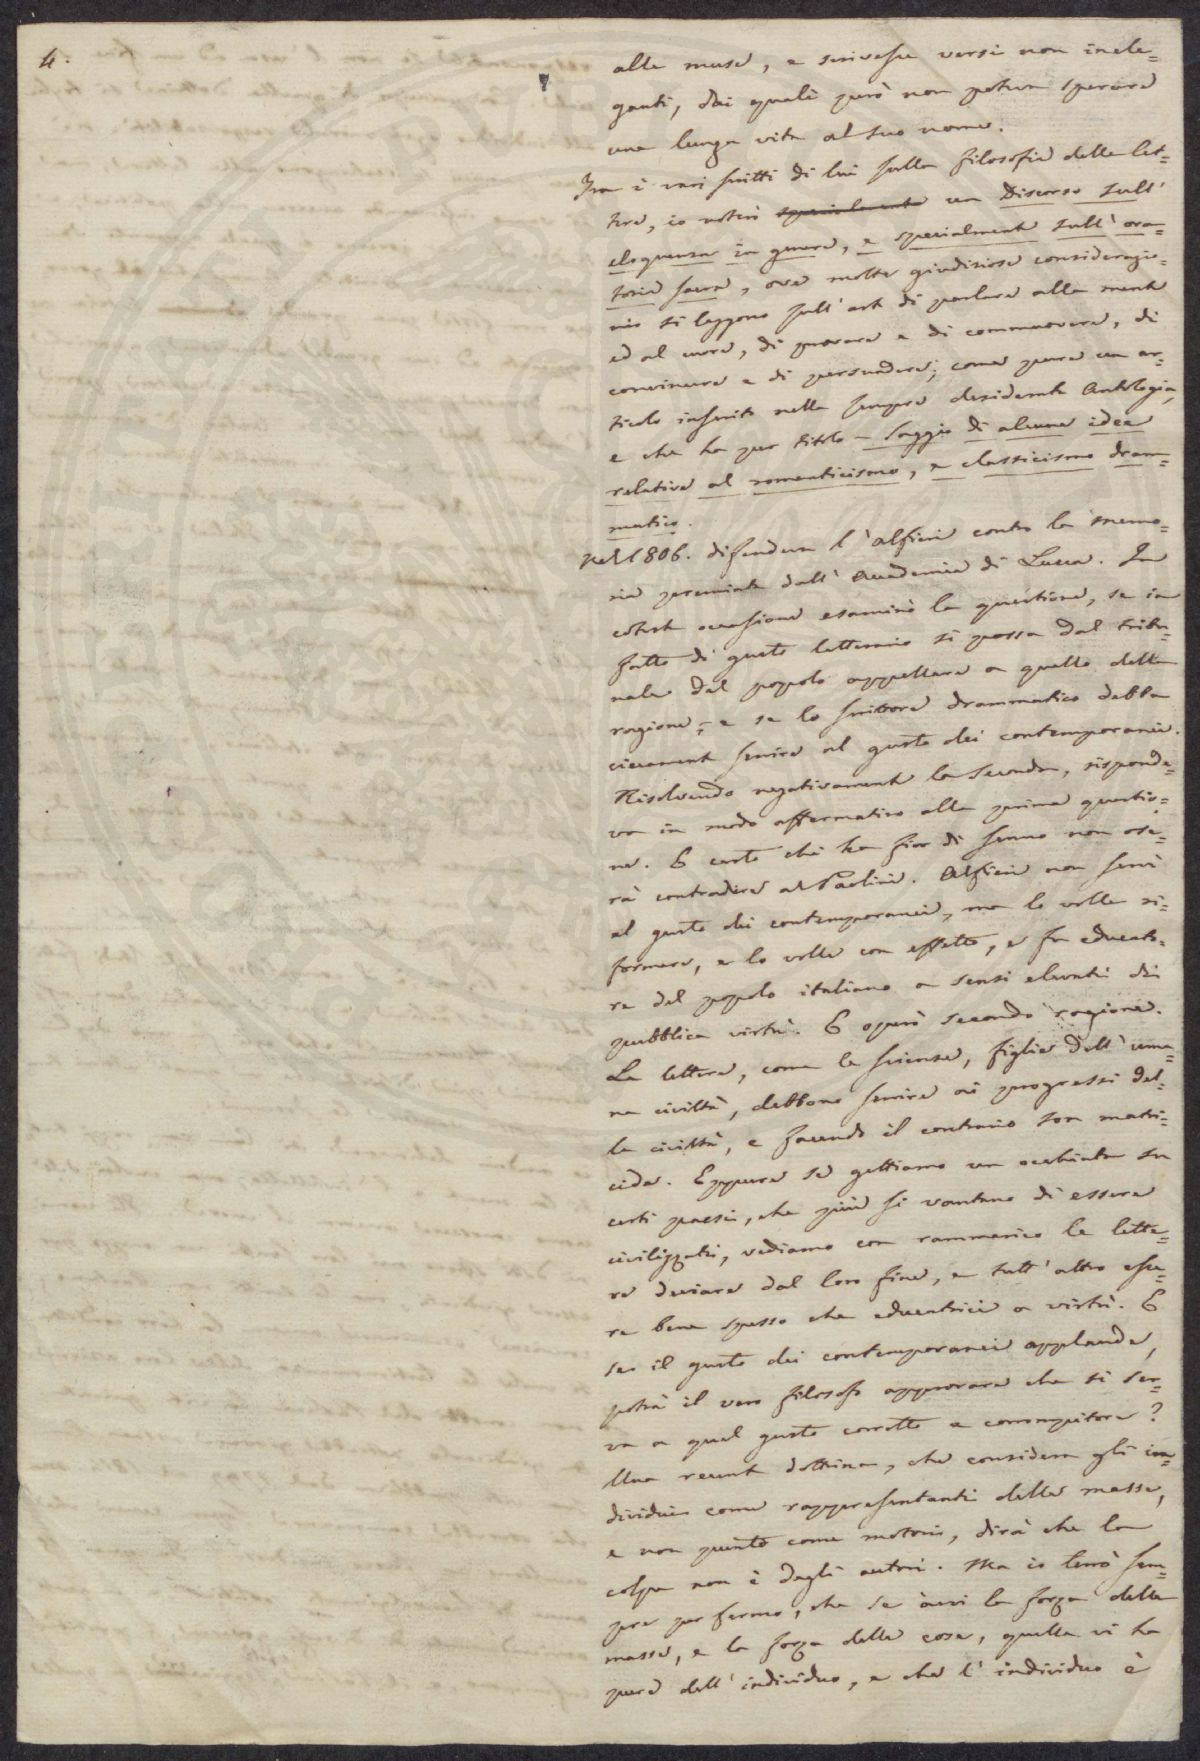 4.
alle muse, e scrivesse versi non inele=
ganti, dai quali però non poteva sperare
una lunga vita al suo nome.
Fra i vari scritti di lui sulla filosofia delle let=
tere, io noterò specialmente un Discorso sull'
eloquenza in genere, e specialmente sull'ora=
toria sacra, ove molte giudiziose considerazio=
ni si leggono sull'arte di parlare alla mente
ed al cuore, di provare e di commuovere, di
convincere e di persuadere; come pure un ar=
ticolo inserito nella sempre desiderata Antologia,
e che ha per titolo – Saggio di alcune idee
relative al romanticismo, e classicismo dram=
matico.
Nel 1806. difendeva l'Alfieri contro la memo=
ria premiata dall'Accademia di Lucca. In
cotesta occasione esaminò la questione, se in
fatto di gusto letterario si possa dal tribu=
nale del popolo appellare a quello della
ragione; e se lo scrittore drammatico debba
ciecamente servire al gusto dei contemporanei.
Risolvendo negativamente la seconda, risponde=
va in modo affermativo alla prima questio=
ne. E certo chi ha fior di senno non ose=
rà contradire al Paolini. Alfieri non servì
al gusto dei contemporanei, ma lo volle ri=
formare, e lo volle con effetto, e fu educato=
re del popolo italiano a sensi elevati di
pubblica virtù. E operò secondo ragione.
Le lettere, come le scienze, figlie dell'uma=
na civiltà, debbono servire ai progressi del=
la civiltà, e facendo il contrario son matri=
cide. Eppure se gettiamo un'occhiata su
certi paesi, che più si vantano di essere
civilizzati, vediamo con rammarico le lette=
re deviare dal loro fine, e tutt'altro esse=
re bene spesso che educatrici a virtù. E
se il gusto dei contemporanei applaude,
potrà il vero filosofo approvare che si ser=
va a quel gusto corrotto e corrompitore?
Una recente dottrina, che considera gli in=
dividui come rappresentanti delle masse,
e non punto come motori, dirà che la
colpa non è degli autori. Ma io terrò sem=
pre per fermo, che se avvi la forza delle
masse, e la forza delle cose, quella vi ha
pure dell'individuo, e che l'individuo è